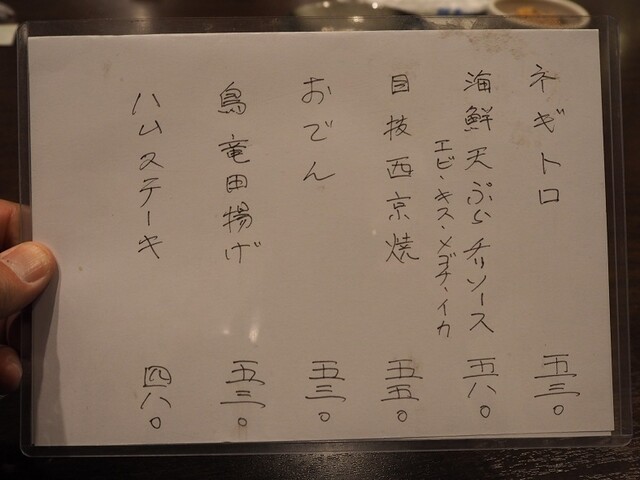 ネギトロ 五三〇
海鮮天ぷらチリソース 五八〇
エビ・キス・メゴチ・イカ
目抜西京焼 五五〇
おでん 五三〇
鳥竜田揚げ 五三〇
ハムステーキ 四八〇